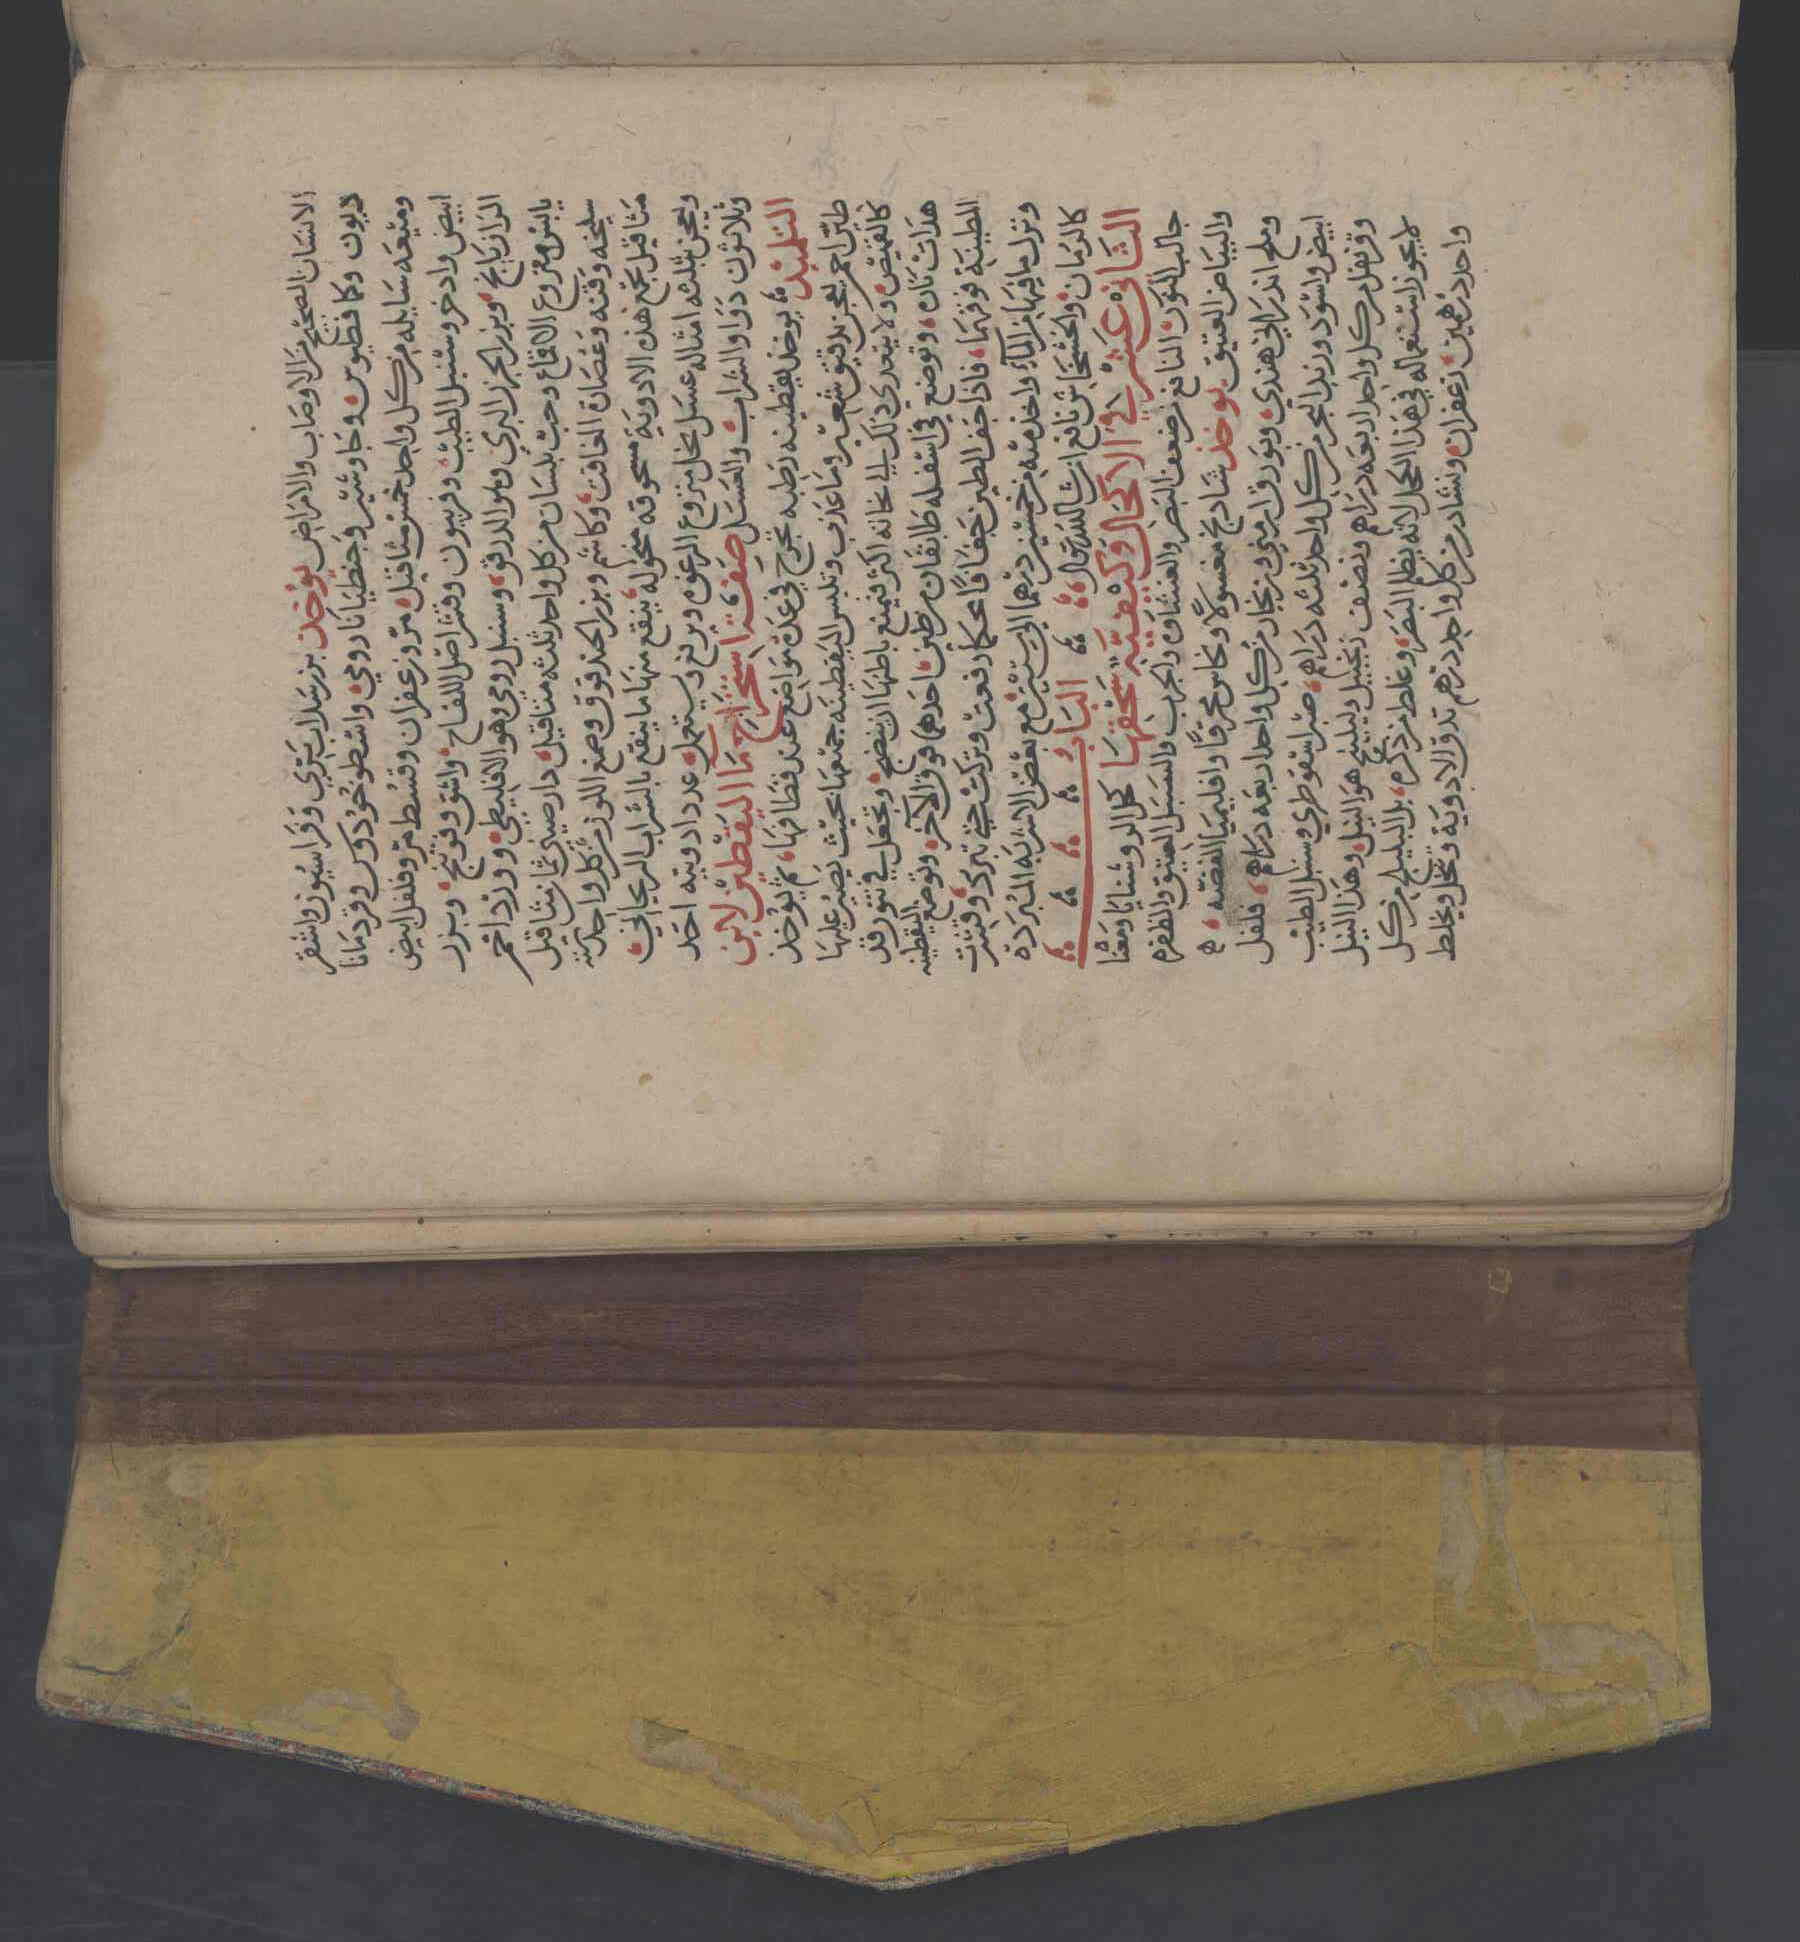 الانسان الصحيح من الاوصاب والامراض يوخذ بزر سداب بري وفراسيون واشقر
ديون وكمافيطوس وجاوشير وجنطيانا رومي واسطوخودوس وقردمانا
وميعه سايله من كل واحد خمس مثاقيل مر وزعفران وقسط مر وفلفل ابيض
ابيض واذخر وسنبل الطيب وفربيون وقشر اصل اللفاح واشق وفوتنج وبزر
الرازيانج وبزر الجزر البري وهو الدوقو وسنبل رومي وهو الاقليطي وورد احمر
يابس منزوع الاقماع وحب بلسان من كل واحد ثلثه مثاقيل دارصيني ثمان مثاقيل
سليخه وقنه وعصارة الغافت وكاشم وبزر الحندقوق وصمغ اللوز من كل واحد سته
مثاقيل تجمع هذه الادويه مسحوقه منخوله ينقع منها ما ينقع بالشراب الريحاني
ويعجن بثلثه امثاله عسل نحل منزوع الرغوه ويرفع ويستعمل عدد ادويته احد
وثلاثون دوا والشراب والعسل صفة استخراج ما اليقطين لابن
التلميذ يوخذ يقطينه رطبه تجرح في عدة مواضع عند قطافها ثم يوخذ
طين احمر يعجن بدقيق شعير وما عذب وتلبس اليقطينه جمعها بحيث يصير عليها
كالقميص ولا يتعدي ذلك الي ثخانه اكثر فيمنع باطنها ان ينضج وتجعل في تنور قد
هدات ناره وتوضع في اسفله طابقان من طين احدهما فوق الاخر وتوضع اليقطينه
المطينة فوقهما فاذا جف الطين جفافا محكما رفعت وتركت حتي تبرد وقشرت
ونزل ما فيها من الماء واخذ منه من خمسين درهما الي ستين مع بعض الاشربه المبرده
كالرمان والخشخاش نافع ان شا الله تعالى الباب
الثاني عشر في الاكحال وكيفية سحقها كحل الروشنايا ومعنا
جالب النور النافع من ضعف البصر والغشاوه والجرب والسبل العتيق والظفره
والبياض العتيق يوخذ شادنج مغسولا ونحاس محرقا واقليميا الفضه
وملح اندراني هندي وبورق ارمني وزنجار من كل واحد اربعه دراهم فلفل
ابيض واسود وزبد البحر من كل واحد ثلثه دراهم صبر اسقوطري وسنبل الطيب
وقرنفل من كل واحد اربعه دراهم ونصف زنجبيل وليلنج هو النيل وهذا النيل
لا يجوز استعماله في هذا الكحل لانه يظلم البصر وغلط من ذكره بل البليلج من كل
واحد درهمين زعفران ونشادر من كل واحد درهم تدق الادوية وتنخل ويخلط